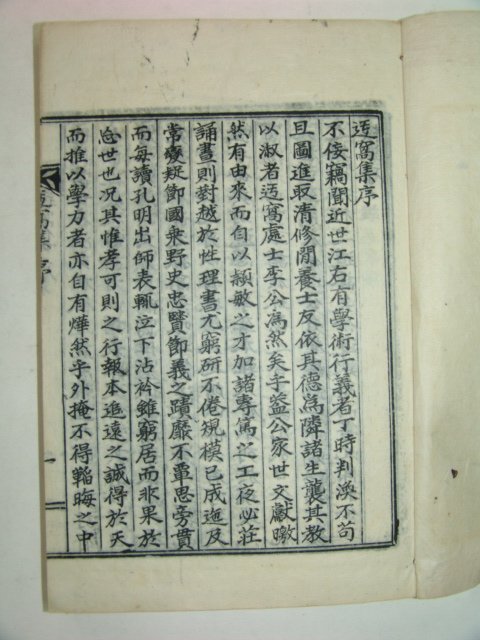 迃窩集序
不佞竊聞近世江右有學術行義者丁時判渙不苟
且圖進取清修閒養士友依其德爲隣諸生襲其教
以淑者迃窩處士李公爲然矣乎益公家世文獻曒
然有由來而自以穎敏之才加諸專篤之工夜必莊
誦晝則對越於性理書尤窮研不倦規模已成迤及
常變疑節國乘野史忠賢節義之蹟靡不覃思旁貫
而每讀孔明出師表輒泣下沾衿雖窮居而非果於
忘世也况其惟孝可則之行報本追遠之誠得於天
而推以學力者亦自有燁然乎外掩不得韜晦之中
迃窩集序
一